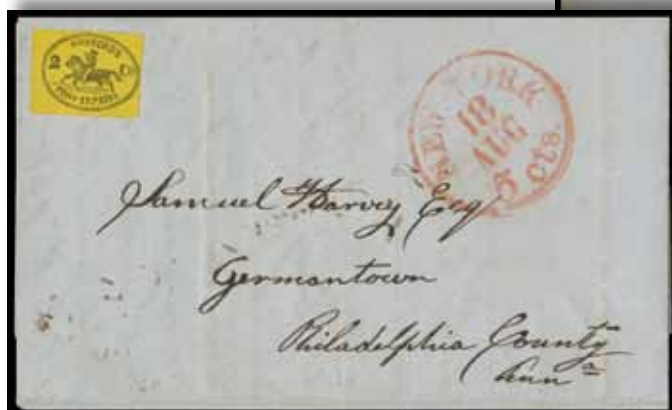 2 C
POST EXPRESS
NEW YORK
18
AUG
5 cts.
Samuel Harvey Esq
Germantown
Philadelphia County
Penna